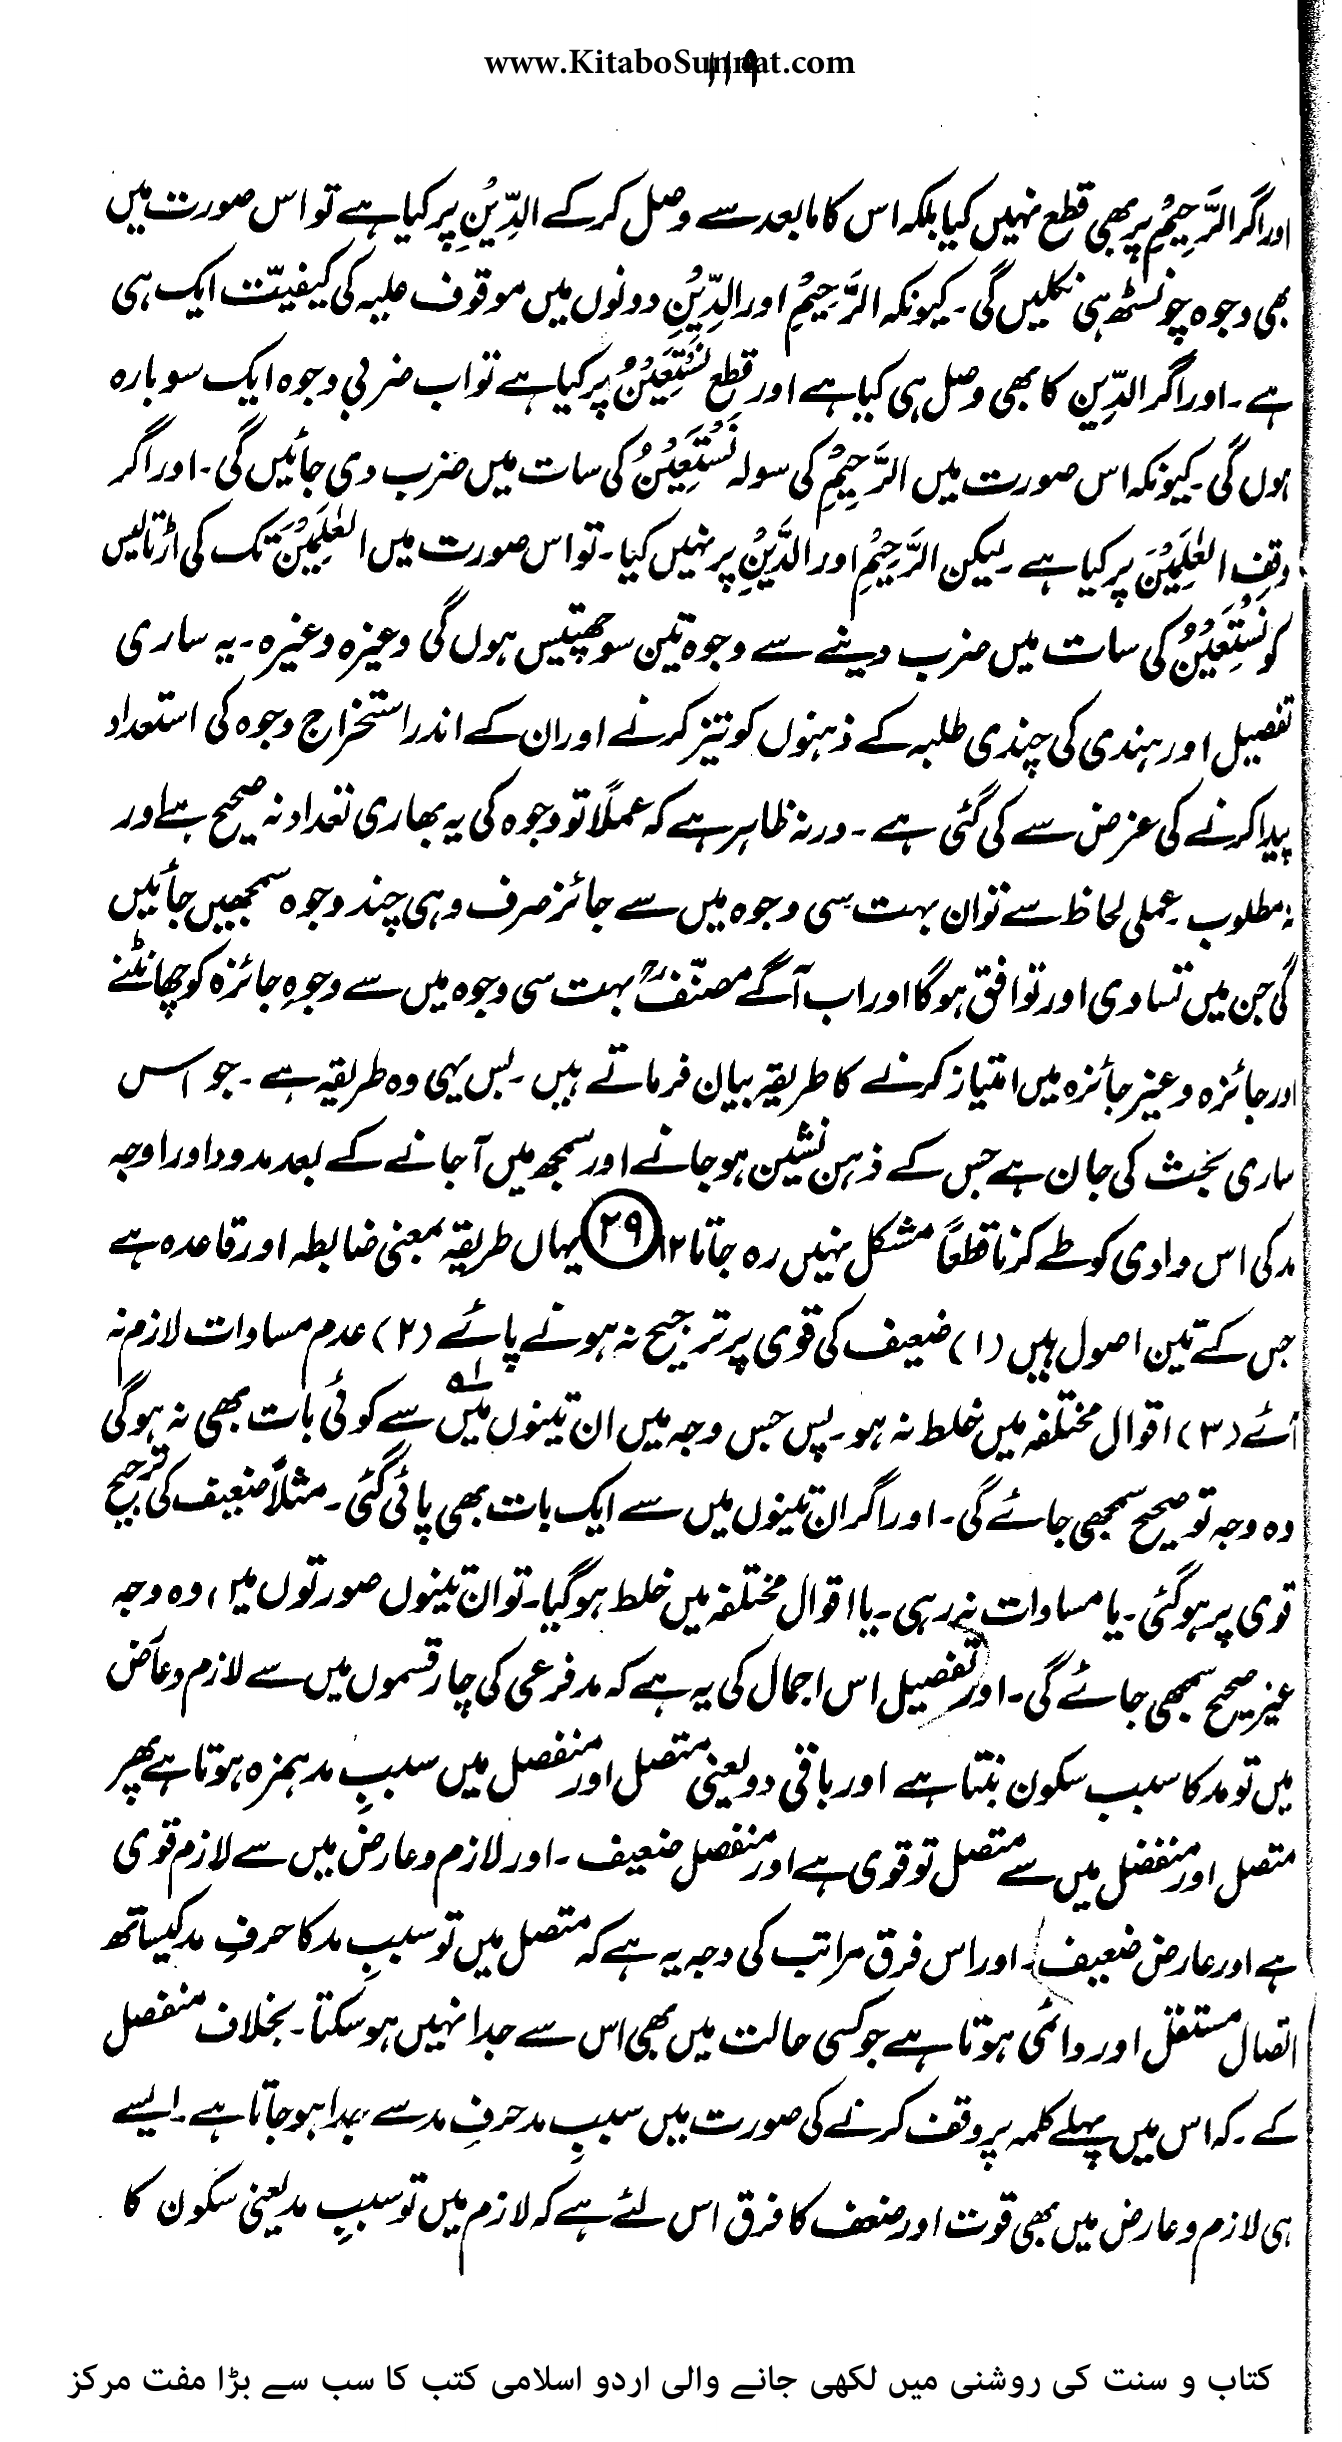 www.KitaboSunnat.com
۱۱۹
اور اگر الرَّحِيْمِ پر بھی قطع نہیں کیا بلکہ اس کا مابعد سے وصل کر کے الدِّيْنِ پر کیا ہے تو اس صورت میں
بھی وجوہ چونسٹھ ہی نکلیں گی۔ کیونکہ الرَّحِيْمِ اور الدِّيْنِ دونوں میں موقوف علیہ کی کیفیّت ایک ہی
ہے۔ اور اگر الدِّينِ کا بھی وصل ہی کیا ہے اور قطع نَسْتَعِيْنُ پر کیا ہے تو اب ضربی وجوہ ایک سو بارہ
ہوں گی۔ کیونکہ اس صورت میں الرَّحِيْمِ کی سولہ نَسْتَعِيْنُ کی سات میں ضرب دی جائیں گی۔ اور اگر
وقف العٰلَمِيْنَ پر کیا ہے۔ لیکن الرَّحِيْمِ اور الدِّيْنِ پر نہیں کیا۔ تو اس صورت میں العٰلَمِيْنَ تک کی اڑتالیس
کو نَسْتَعِيْنُ کی سات میں ضرب دینے سے وجوہ تین سو چھتیس ہوں گی وغیرہ وغیرہ۔ یہ ساری
تفصیل اور ہندی کی چندی طلبہ کے ذہنوں کو تیز کرنے اور ان کے اندر استخراج وجوہ کی استعداد
پیدا کرنے کی غرض سے کی گئی ہے۔ ورنہ ظاہر ہے کہ عملاً تو وجوہ کی یہ بھاری تعداد نہ صحیح ہے اور
نہ مطلوب۔ عملی لحاظ سے تو ان بہت سی وجوہ میں سے جائز صرف وہی چند وجوہ سمجھیں جائیں
گی جن میں تساوی اور توافق ہوگا اور اب آگے مصنّفؒ بہت سی وجوہ میں سے وجوہِ جائزہ کو چھانٹنے
اور جائزہ وغیر جائزہ میں امتیاز کرنے کا طریقہ بیان فرماتے ہیں۔ بس یہی وہ طریقہ ہے۔ جو اس
ساری بحث کی جان ہے جس کے ذہن نشین ہو جانے اور سمجھ میں آ جانے کے بعد مدود اور اوجہ
مد کی اس وادی کو طے کرنا قطعاً مشکل نہیں رہ جاتا ۱۲ (۲۹) یہاں طریقہ بمعنی ضابطہ اور قاعدہ ہے
جس کے تین اصول ہیں (۱) ضعیف کی قوی پر ترجیح نہ ہونے پائے (۲) عدم مساوات لازم نہ
آئے (۳) اقوال مختلفہ میں خلط نہ ہو۔ پس جس وجہ میں ان تینوں میں سے کوئی بات بھی نہ ہوگی
وہ وجہ تو صحیح سمجھی جائے گی۔ اور اگر ان تینوں میں سے ایک بات بھی پائی گئی۔ مثلاً ضعیف کی ترجیح
قوی پر ہوگئی۔ یا مساوات نہ رہی۔ یا اقوال مختلفہ میں خلط ہو گیا۔ تو ان تینوں صورتوں میں وہ وجہ
غیر صحیح سمجھی جائے گی۔ اور تفصیل اس اجمال کی یہ ہے کہ مد فرعی کی چار قسموں میں سے لازم و عارض
میں تو مد کا سبب سکون بنتا ہے اور باقی دو یعنی متصل اور منفصل میں سببِ مد ہمزہ ہوتا ہے پھر
متصل اور منفصل میں سے متصل تو قوی ہے اور منفصل ضعیف۔ اور لازم و عارض میں سے لازم قوی
ہے اور عارض ضعیف۔ اور اس فرق مراتب کی وجہ یہ ہے کہ متصل میں تو سببِ مد کا حرفِ مد کیساتھ
اتصال مستقل اور دائمی ہوتا ہے جو کسی حالت میں بھی اس سے جدا نہیں ہو سکتا۔ بخلاف منفصل
کے۔ کہ اس میں پہلے کلمہ پر وقف کرنے کی صورت میں سببِ مد حرفِ مد سے جدا ہو جاتا ہے۔ ایسے
ہی لازم و عارض میں بھی قوت اور ضعف کا فرق اس لئے ہے کہ لازم میں تو سببِ مد یعنی سکون کا
کتاب و سنت کی روشنی میں لکھی جانے والی اردو اسلامی کتب کا سب سے بڑا مفت مرکز